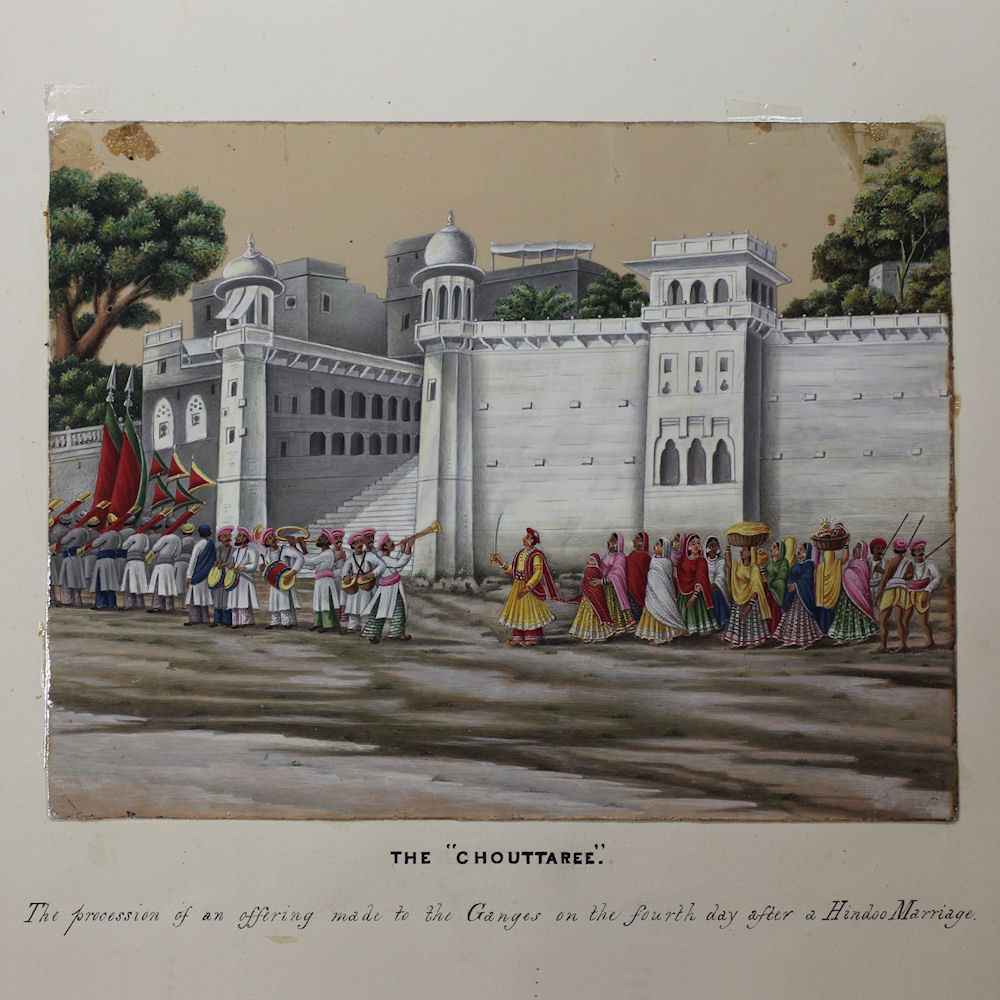 THE "CHOUTTAREE".
The procession of an offering made to the Ganges on the fourth day after a Hindoo Marriage.